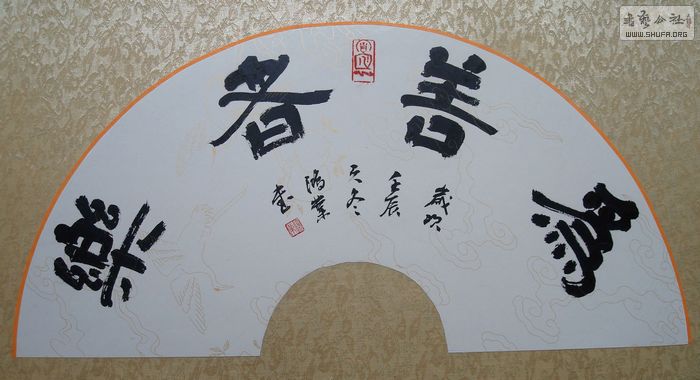 為善者樂
歲次
壬辰
之冬
鴻業
書
書藝公社
WWW.SHUFA.ORG